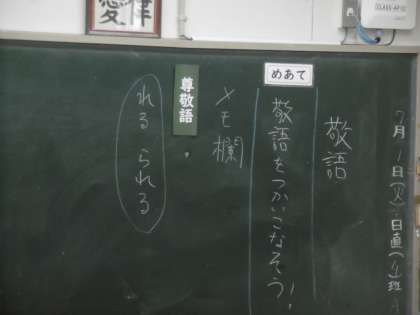 7月1日(火)日直(4班
敬語
めあて
敬語をつかいこなそう!
メモ欄
尊敬語
れる られる